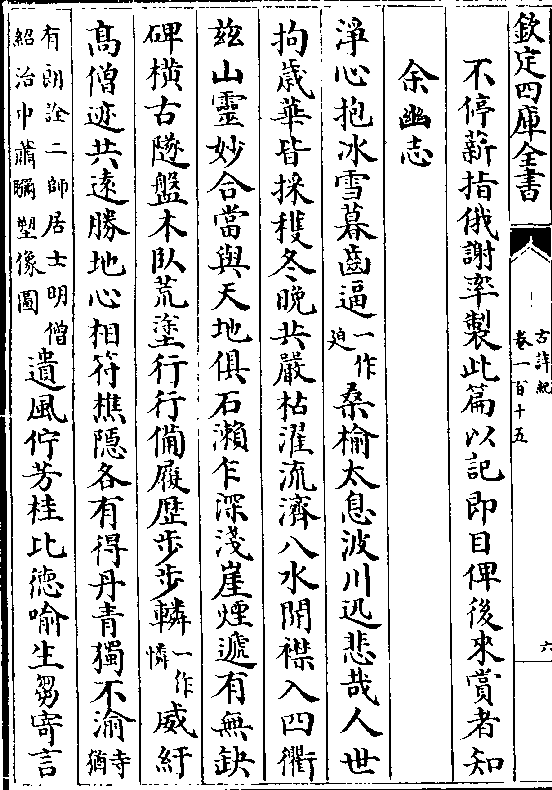 欽定四庫全書
古詩紀
卷一百十五
六
不停薪指俄謝率製此篇以記即目俾後來賞者知
余幽志
淨心抱冰雪暮齒逼一作迫桑榆太息波川迅悲哉人世
拘歲華皆採穫冬晚共嚴枯濯流濟八水開襟入四衢
兹山靈妙合當與天地俱石瀨乍深淺崖煙遞有無缺
碑橫古隧盤木臥荒塗行行備履歴步步轔一作憐威紆
髙僧迹共遠勝地心相符樵隱各有得丹青獨不渝寺猶
有朗詮二師居士明僧紹治中蕭眎塑像圖遺風佇芳桂比德喻生芻寄言